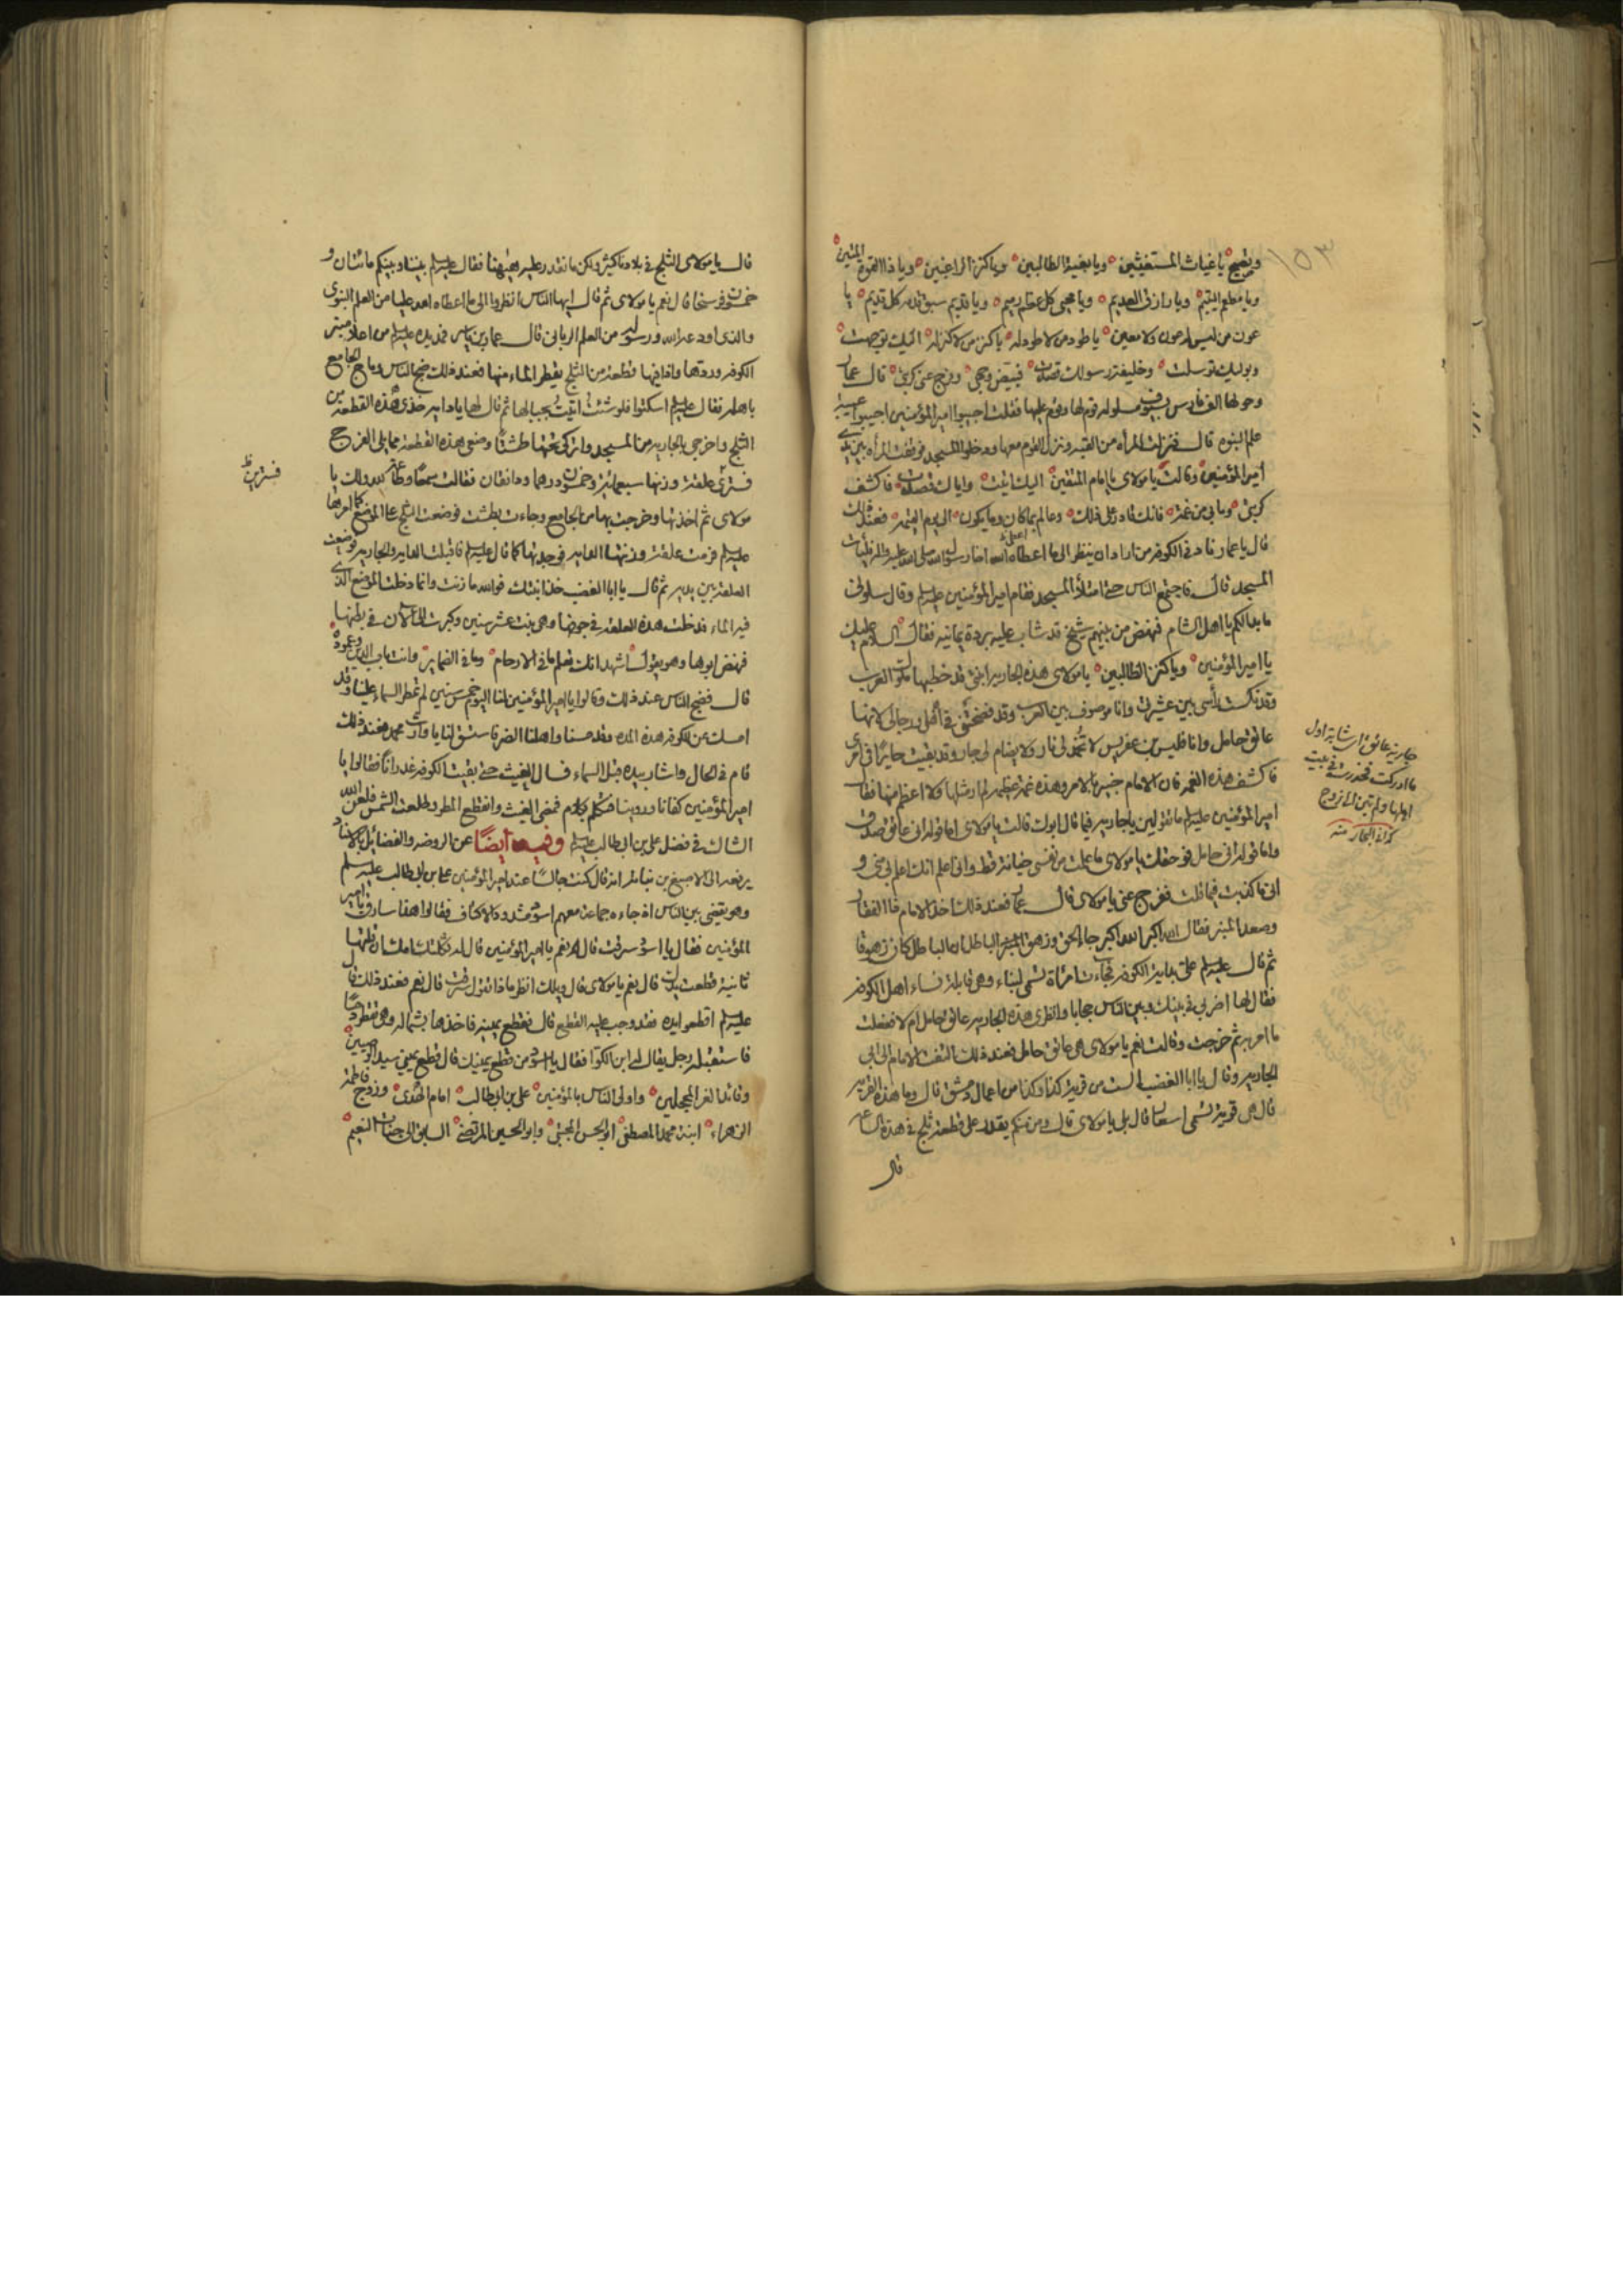 ١٥٣
وتصيح يا غياث المستغيثين ويا بغية الطالبين ويا كنز الراغبين ويا ذا القوة المتين
ويا مطعم اليتيم ويا رازق العديم ويا محيي كل عظم رميم ويا قديم سبق قدمه كل قديم يا
عون من ليس له عون ولا معين يا طود من لا طود له يا كنز من لا كنز له اليك توجهت
وبوليك توسلت وخليفة رسولك قصدت فبيض وجهي وفرج عني كربتي قال عمار
وحولها الف فارس بسيوف مسلولة قوم لها وقوم عليها فقلت اجيبوا امير المؤمنين اجيبوا عيبة
علم النبوه قال فنزلت المرأه من القبه ونزل القوم معها ودخلوا المسجد فوقفت المرأه بين يدي
امير المؤمنين وقالت يا مولاي يا امام المتقين اليك اتيت واياك قصدت فاكشف
كربتي وما بي من غمة فانك قادر على ذلك وعالم بما كان وما يكون الى يوم القيمه فعند ذلك
قال يا عمار ناد في الكوفه من اراد ان ينظر الى ما اعطاه الله اخا رسول الله صلى الله عليه واله فليأت
المسجد قال فاجتمع الناس حتى امتلأ المسجد فقام امير المؤمنين عليه السلم وقال سلوني
ما بدا لكم يا اهل الشام فنهض من بينهم شيخ قد شاب عليه بردة يمانيه فقال السلام عليك
يا امير المؤمنين ويا كنز الطالبين يا مولاي هذه الجاريه ابنتي قد خطبها ملوك العرب
وقد نكست رأسي بين عشيرتي وانا موصوف بين العرب وقد فضحتني في اهلي ورجالي لانها
عاتق حامل وانا فليس بن عفريس لا تخمد لي نار ولا يضام لي جار وقد بقيت حايرا في امري
فاكشف هذه الغمه فان الامام خبير بالامر وهذه غمة عظيمه لم ار مثلها ولا اعظم منها فقال
امير المؤمنين عليه السلم ما تقولين يا جاريه فيما قال ابوك قالت يا مولاي اما قوله اني عاتق صدق
واما قوله اني حامل فوحقك يا مولاي ما علمت من نفسي خيانة قط واني اعلم انك اعلم بي مني و
اني ما كذبت فيما قلت ففرج عني يا مولاي قال عمار فعند ذلك اخذ الامام ذا الفقار
وصعد المنبر فقال الله اكبر الله اكبر جاء الحق وزهق الباطل ان الباطل كان زهوقا
ثم قال عليه السلم علي بداية الكوفه فجاءت امرأة تسمى لبناء وهي قابلة نساء اهل الكوفه
فقال لها اضربي في بينك وبين الناس حجابا وانظري هذه الجاريه عاتق حامل ام لا ففعلت
ما امر به ثم خرجت وقالت نعم يا مولاي هي عاتق حامل فعند ذلك التفت الامام الى ابي
الجاريه وقال يا ابا الغضب الست من قرية كذا وكذا من اعمال دمشق قال وما هذه القريه
قال هي قرية تسمى اسعار قال بلى يا مولاي قال ومن منكم يقدر على قطعة ثلج في هذه الساعه
قال
جارية عاتق اي شابة اول
ما ادركت فخدرت في بيت
اهلها ولم تبن الى زوج
كذا في البحار منه
قال يا مولاي الثلج في بلادنا كثير ولكن ما نقدر عليه ههنا فقال عليه السلم بيننا وبينكم مائتان و
خمسون فرسخا قال نعم يا مولاي ثم قال ايها الناس انظروا الى ما اعطاه الله عليا من العلم النبوي
والذي اودعه الله ورسوله من العلم الرباني قال عمار بن ياسر فمد يده عليه السلم من اعلا منبر
الكوفه وردها واذا فيها قطعة من الثلج يقطر الماء منها فعند ذلك ضج الناس وماج الجامع
باهله فقال عليه السلم اسكتوا فلو شئت اتيت بجبالها ثم قال لها يا دايه خذي هذه القطعة من
الثلج واخرجي بالجاريه من المسجد واتركي تحتها طشتا وضعي هذه القطعة مما يلي الفرج
فسترى علقة وزنها سبعمائة وخمسون درهما ودانقان فقالت سمعا وطاعة لله ولك يا
مولاي ثم اخذتها وخرجت بها من الجامع وجاءت بطشت فوضعت الثلج على الموضع كما امرها
عليه السلم فرمت علقة وزنتها الدايه فوجدتها كما قال عليه السلم فاقبلت الدايه والجاريه فوضعت
العلقة بين يديه ثم قال يا ابا الغضب خذ ابنتك فوالله ما زنت وانما دخلت الموضع الذي
فيه الماء فدخلت هذه العلقة في جوفها وهي بنت عشر سنين وكبرت الى الان في بطنها
فنهض ابوها وهو يقول اشهد انك تعلم ما في الارحام وما في الضماير وانت باب الدين وعموده
قال فضج الناس عند ذلك وقالوا يا امير المؤمنين لنا اليوم خمس سنين لم تمطر السماء علينا وقد
امسك عن الكوفه هذه المده وقد مسنا واهلنا الضر فاستسق لنا يا وارث محمد فعند ذلك
قام في الحال واشار بيده قبل السماء فسال الغيث حتى بقيت الكوفه غدرانا فقالوا يا
امير المؤمنين كفانا وروينا فتكلم بكلام فمضى الغيث وانقطع المطر وطلعت الشمس فلعن الله
الشاك في فضل علي بن ابي طالب عليه السلم وفيه ايضا عن الروضه والفضائل بالاسناد
يرفعه الى الاصبغ بن نباته انه قال كنت جالسا عند امير المؤمنين علي بن ابي طالب عليه السلم
وهو يقضي بين الناس اذ جاءه جماعة معهم اسود مشدود الاكتاف فقالوا هذا سارق يا امير
المؤمنين فقال يا اسود سرقت قال نعم يا امير المؤمنين قال له ثكلتك امك ان قلتها
ثانية قطعت يدك قال نعم يا مولاي قال ويلك انظر ماذا تقول سرقت قال نعم فعند ذلك قال
عليه السلم اقطعوا يده فقد وجب عليه القطع قال فقطع يمينه فاخذها بشماله وهي تقطر دما
فاستقبله رجل يقال له ابن الكوا فقال يا اسود من قطع يمينك قال قطع يميني سيد الوصيين
وقائد الغر المحجلين واولى الناس بالمؤمنين علي بن ابي طالب امام الهدى وزوج فاطمة
الزهراء ابنة محمد المصطفى ابو الحسن المجتبى وابو الحسين المرتضى السابق الى جنات النعيم
فسترين ظ